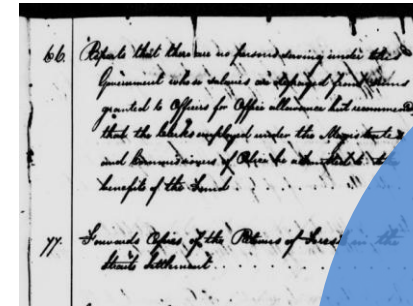 66. Reports that there are no persons serving under this
Government whose salaries are defrayed from sums
granted to Officers for Office allowance but recommends
that the Clerks employed under the Magistrate
and Commissioners of Police be admitted to the
benefits of the Fund
77. Forwards Copies of the Returns of in the
Straits Settlement